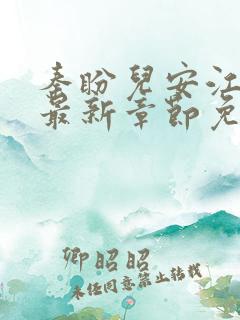 秦盼兒安江
最新章節免
卿昭昭
未经同意禁止转载